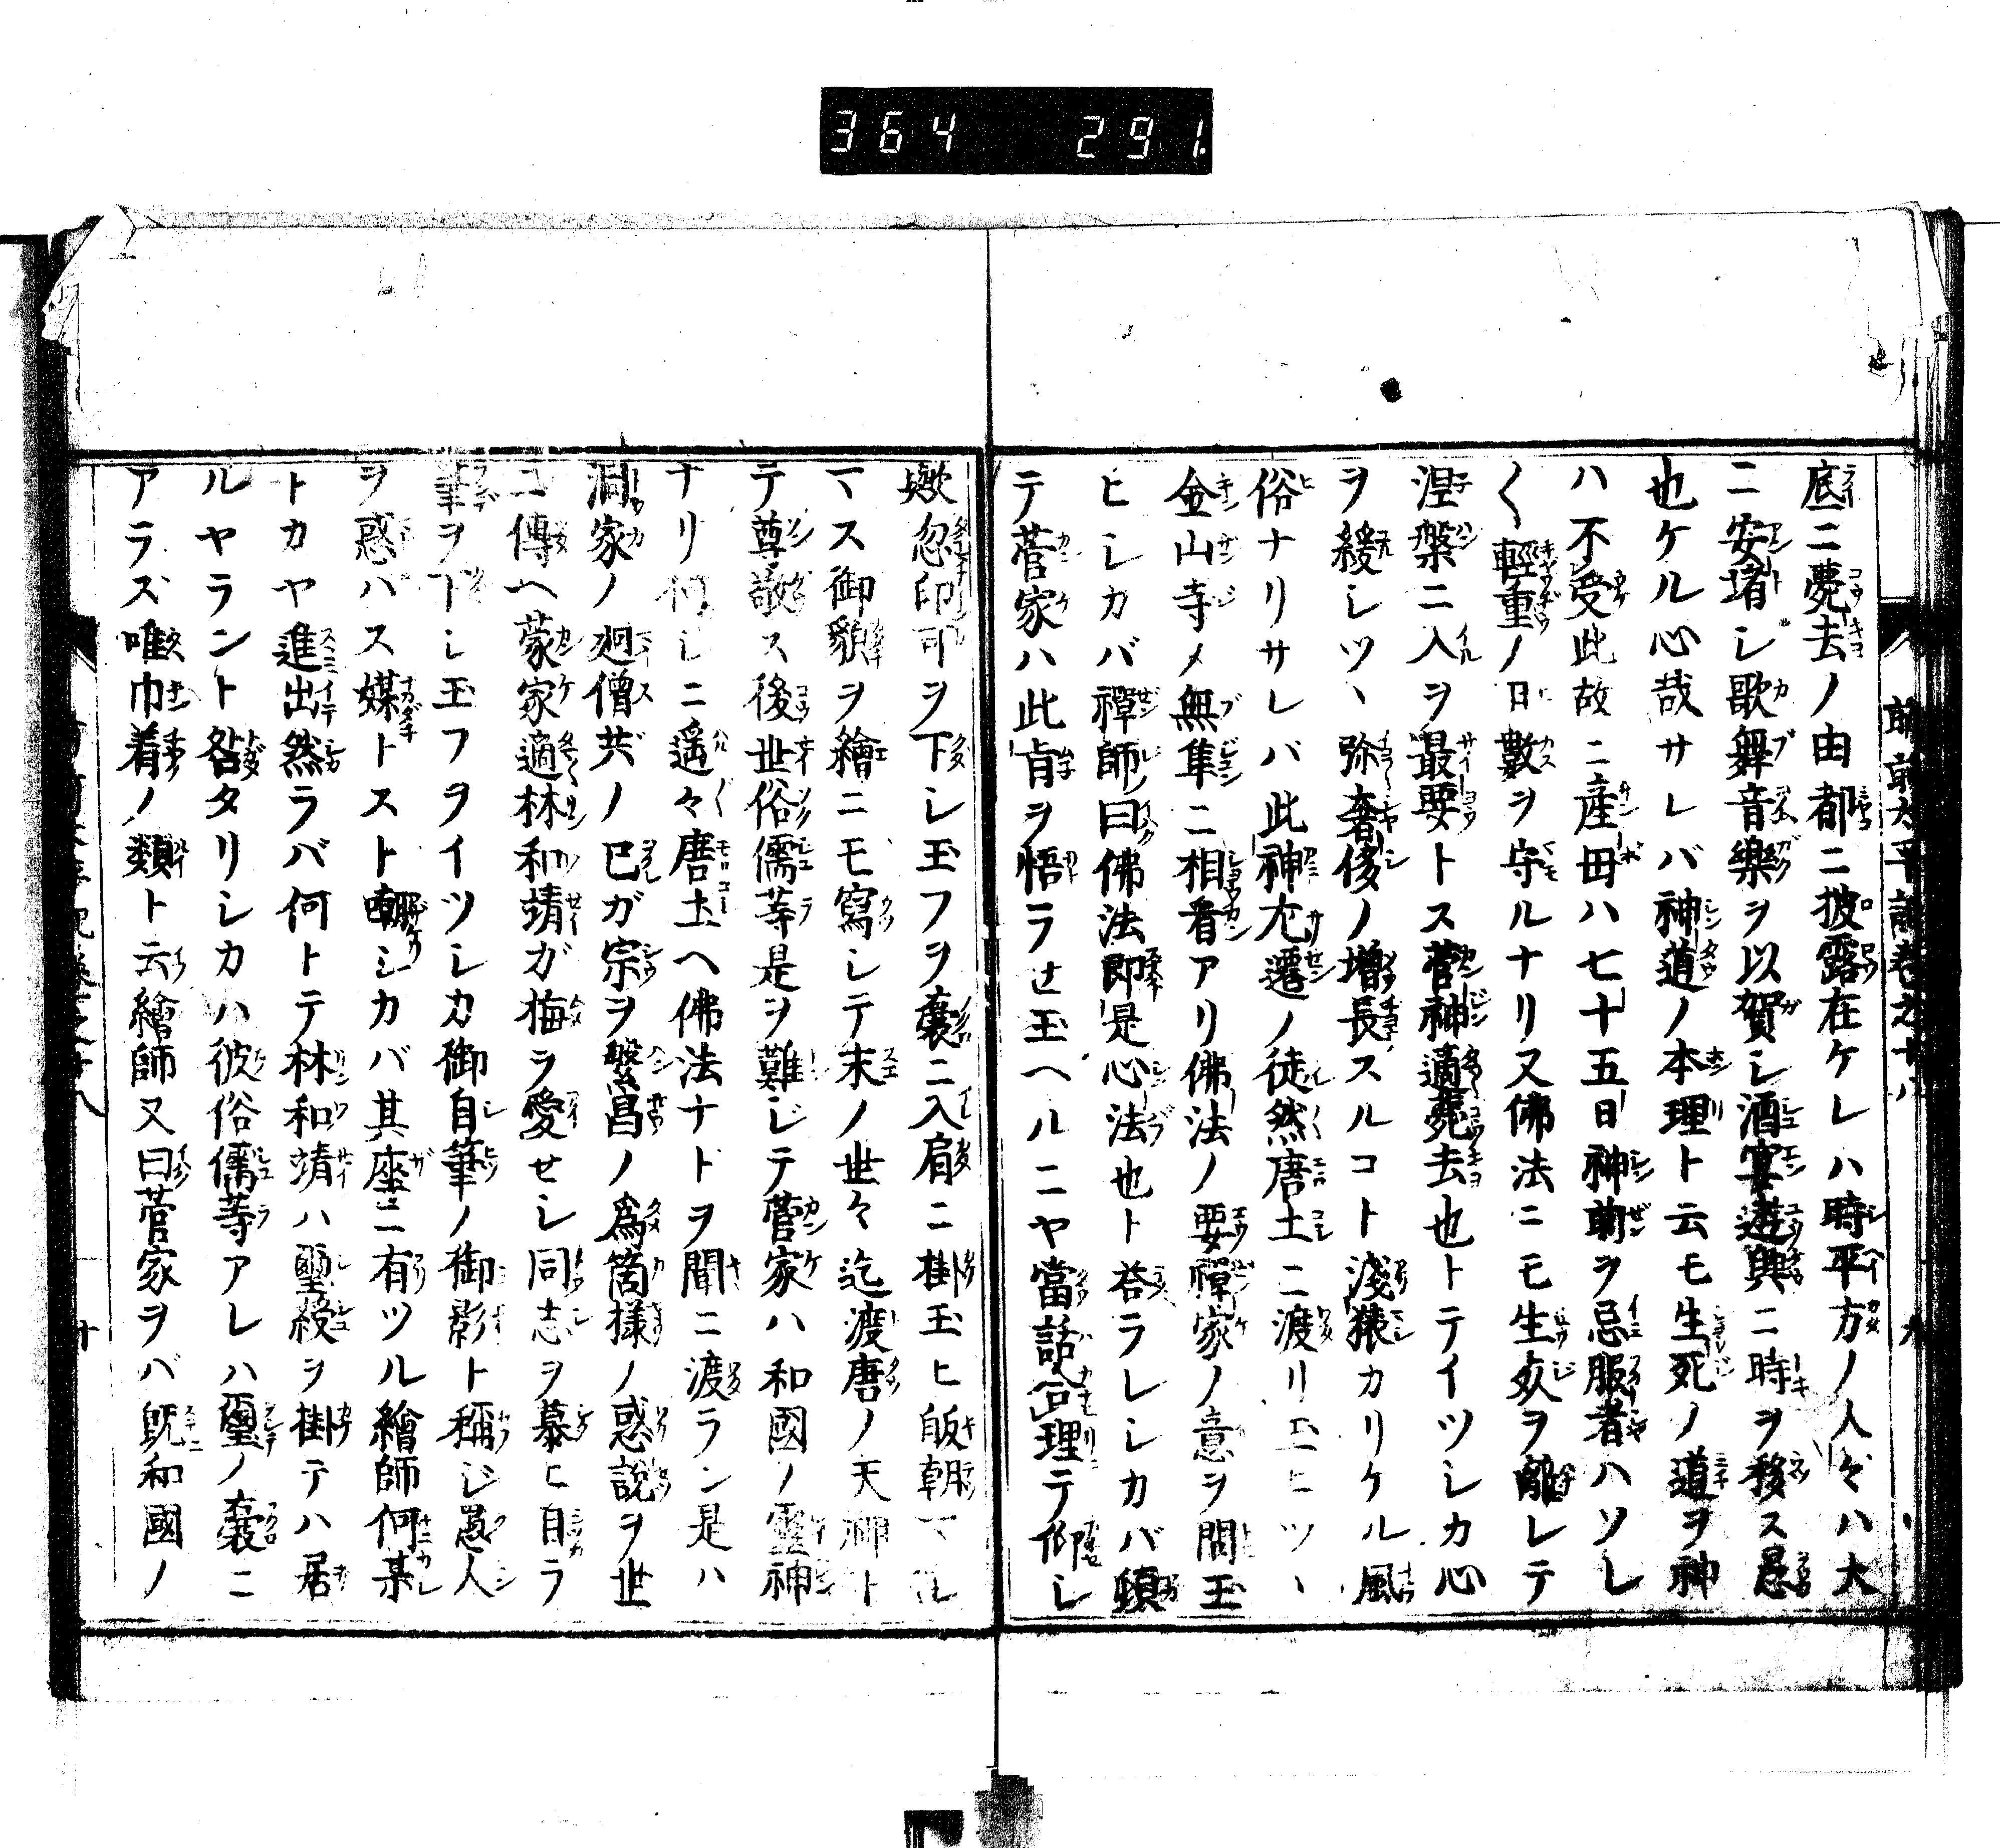 364 291.
前前太平記巻之十八 九
底ニ薨去ノ由都ニ披露在ケレハ時平方ノ人々ハ大
ニ安堵シ歌舞音樂ヲ以賀シ酒宴遊興ニ時ヲ移ス愚
也ケル心哉サレバ神道ノ本理ト云モ生死ノ道ヲ神
ハ不受此故ニ産毋ハ七十五日神前ヲ忌服者ハソレ
〱輕重ノ日數ヲ守ルナリ又佛法ニモ生死ヲ離レテ
涅槃ニ入ヲ最要トス菅神適薨去也トテイツシカ心
ヲ緩シツヽ弥奢侈ノ増長スルコト淺猿カリケル風
俗ナリサレバ此神尤遷ノ徒然唐土ニ渡リ玉ヒツヽ
金山寺メ無準ニ相看アリ佛法ノ要禪家ノ意ヲ問玉
ヒシカバ禪師ノ曰佛法即是心法也ト荅ラレシカバ頓
テ菅家ハ此肯ヲ悟ラせ玉ヘルニヤ當話合理テ仰シ
歟忽印可ヲ下シ玉フヲ嚢ニ入肩ニ掛玉ヒ皈朝マシ
マス御貌ヲ繪ニモ寫シテ末ノ世々迄渡唐ノ天神ト
テ尊敬ス後世俗儒等是ヲ難ジテ菅家ハ和國ノ靈神
ナリ何シニ遥々唐土ヘ佛法ナドヲ聞ニ渡ラン是ハ
洞家ノ廻僧共ノ巳ガ宗ヲ繁昌ノ爲箇様ノ惑説ヲ世
ニ傳ヘ蒙家適林和靖ガ梅ヲ愛せシ同志ヲ慕ヒ自ラ
筆ヲ下シ玉フヲイツシカ御自筆ノ御影ト稱ジ愚人
ヲ惑ハス媒トストト嘲シカバ其座ニ有ツル繪師何某
トカヤ進出然ラバ何トテ林和靖ハ璽綬ヲ掛テハ居
ルヤラント咎タリシカハ彼俗儒等アレハ璽ノ嚢ニ
アラズ唯巾着ノ類ト云繪師又曰菅家ヲバ既和國ノ
十